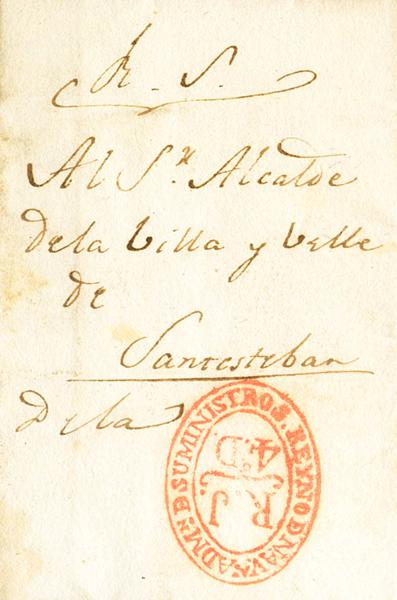 R. S.
Al S.r Alcalde
de la Villa y Valle
de
Santesteban
De la
ADM.N D SUMINISTROS. REYNO D NAV.A
R. J.
4. D.